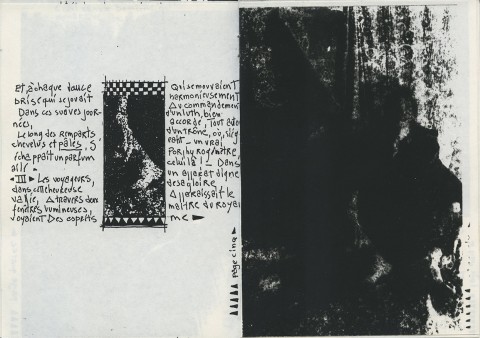 Et à chaque douce
brise qui se jouait
Dans ces suaves jour-
nées,
Le long des remparts
chevelus et pâles, S'
échappait un parfum
ailé.
III Les voyageurs,
dans cette heureuse
vallée, A travers deux
fenêtres lumineuses,
voyaient Des esprits
Qui se mouvaient
harmonieusement
Au commandement
d'un luth bien
accordé, Tout autour
d'un trône, où, sié
eait – un vrai
Porphyrogénète,
celui là ! – Dans
un apparat digne
de sa gloire,
Apparaissait le
maître du Royau
me
page cinq